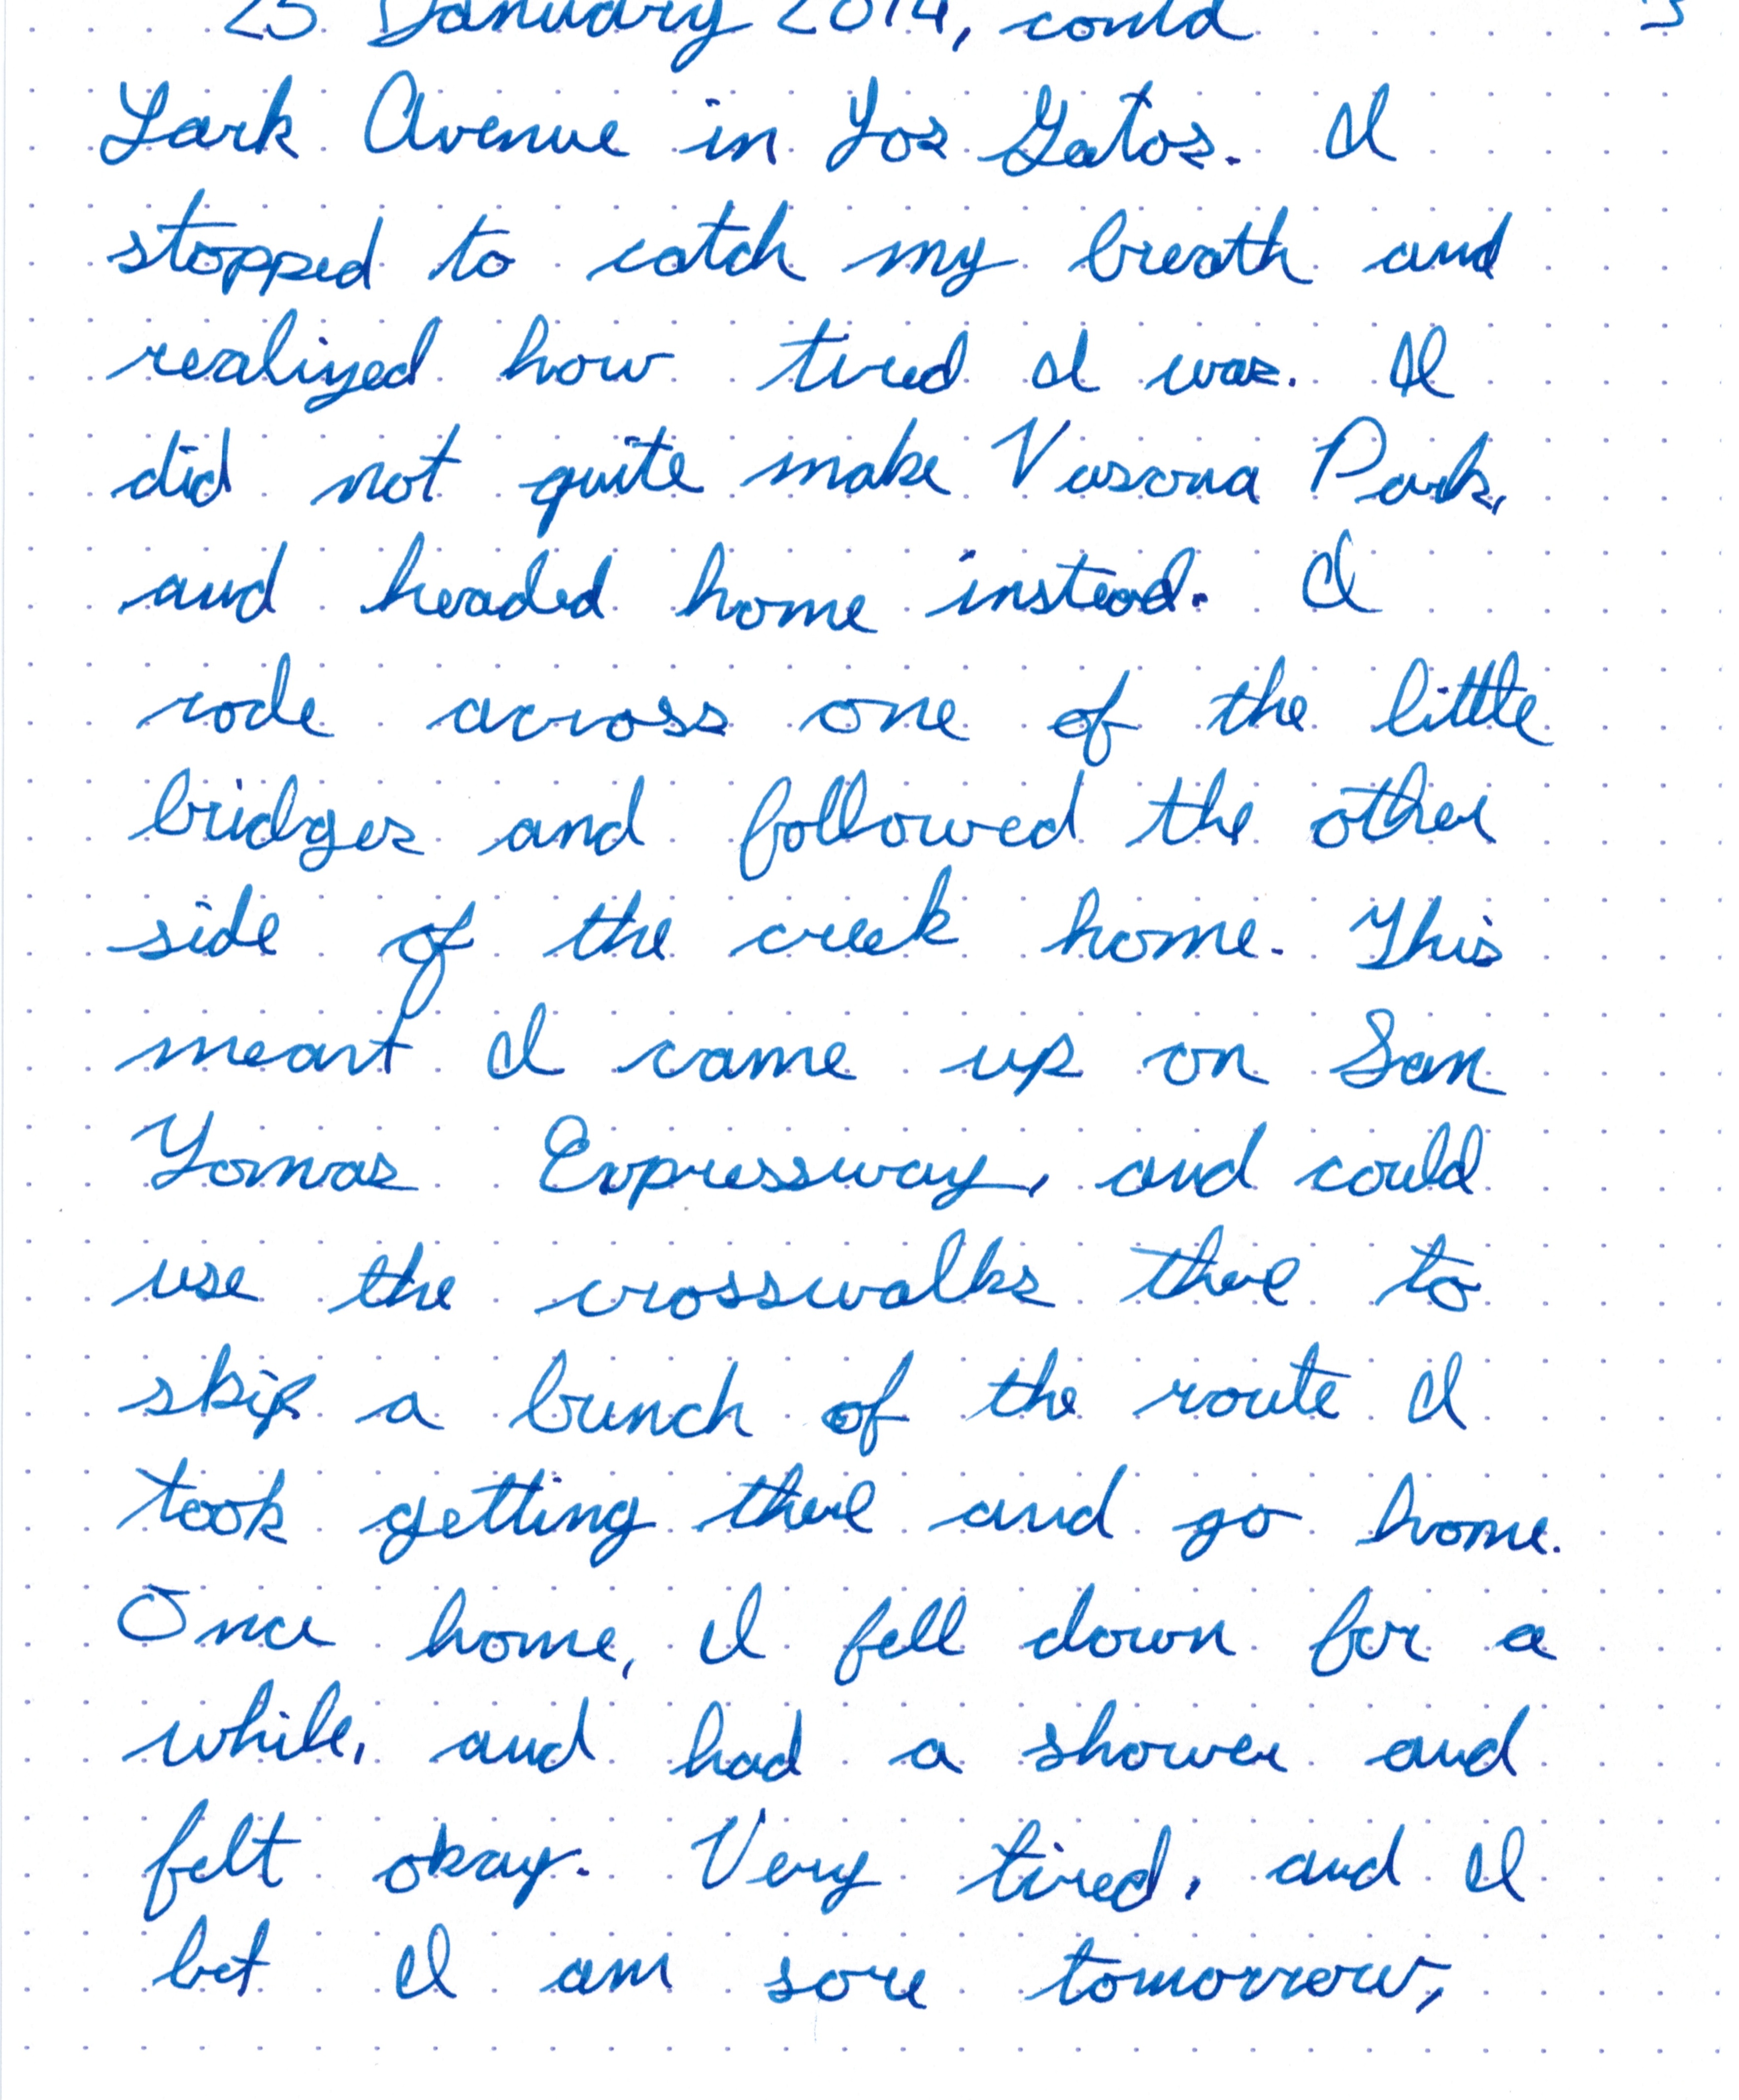 25 January 2014, contd 3
Lark Avenue in Los Gatos. I
stopped to catch my breath and
realized how tired I was. I
did not quite make Vasona Park,
and headed home instead. I
rode across one of the little
bridges and followed the other
side of the creek home. This
meant I came up on San
Tomas Expressway, and could
use the crosswalks there to
skip a bunch of the route I
took getting there and go home.
Once home, I fell down for a
while, and had a shower and
felt okay. Very tired, and I
bet I am sore tomorrow,